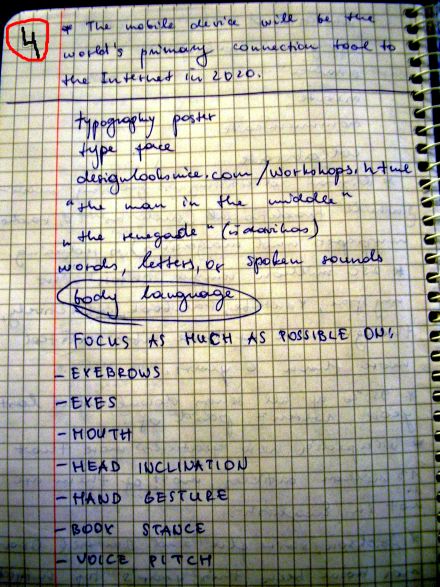 4
* The mobile device will be the
world's primary connection tool to
the Internet in 2020.
typography poster
type face
designlooksnice.com/workshops.html
"the man in the middle"
"the renegade"
words, letters, or spoken sounds
body language
FOCUS AS MUCH AS POSSIBLE ON:
- EYEBROWS
- EYES
- MOUTH
- HEAD INCLINATION
- HAND GESTURE
- BODY STANCE
- VOICE PITCH